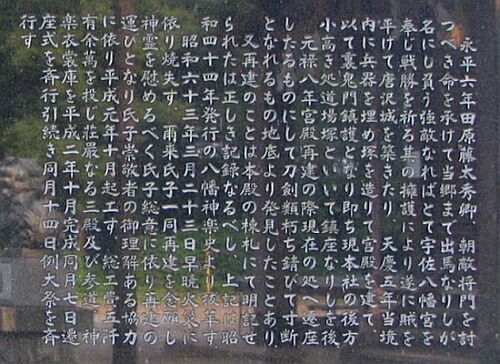 永平六年田原藤太秀郷　朝敵将門を討
つべき命を承けて当郷まで出馬なりしが
名にし負う強敵なればとて宇佐八幡宮を
奉じ戦勝を祈る其の擁護により遂に賊を
平げて唐沢城を築きたり　天慶五年当境
内に兵器を埋め塚を造りて宮殿を建て
以て裏鬼門鎮護となり即ち現本社の後方
小高き処道場塚といいて鎮座なりしを後
元禄八年宮殿再建の際現在の処へ遷座
したるものにして刀剣類朽ち錆びて寸断
となれるもの地底より発見したことあり
又再建のことは本殿の棟札にて明記せ
られたは正しき記録なるべし　上記は昭
和四十四年発行の八幡神楽史より抜萃す
昭和六十三年三月二十三日早暁火災に
依り焼失す　雨来氏子一同再建を念願し
神霊を慰めるべく氏子総意に依り再建の
運びとなり氏子崇敬者の御理解ある協力
に依り平成元年十月起工す　総工費五阡
有余萬を投じ荘厳なる三殿及び参道　神
楽衣裳庫を平成二年十月完成同月七日還
座式を斉行引続き同月十四日例大祭を斉
行す